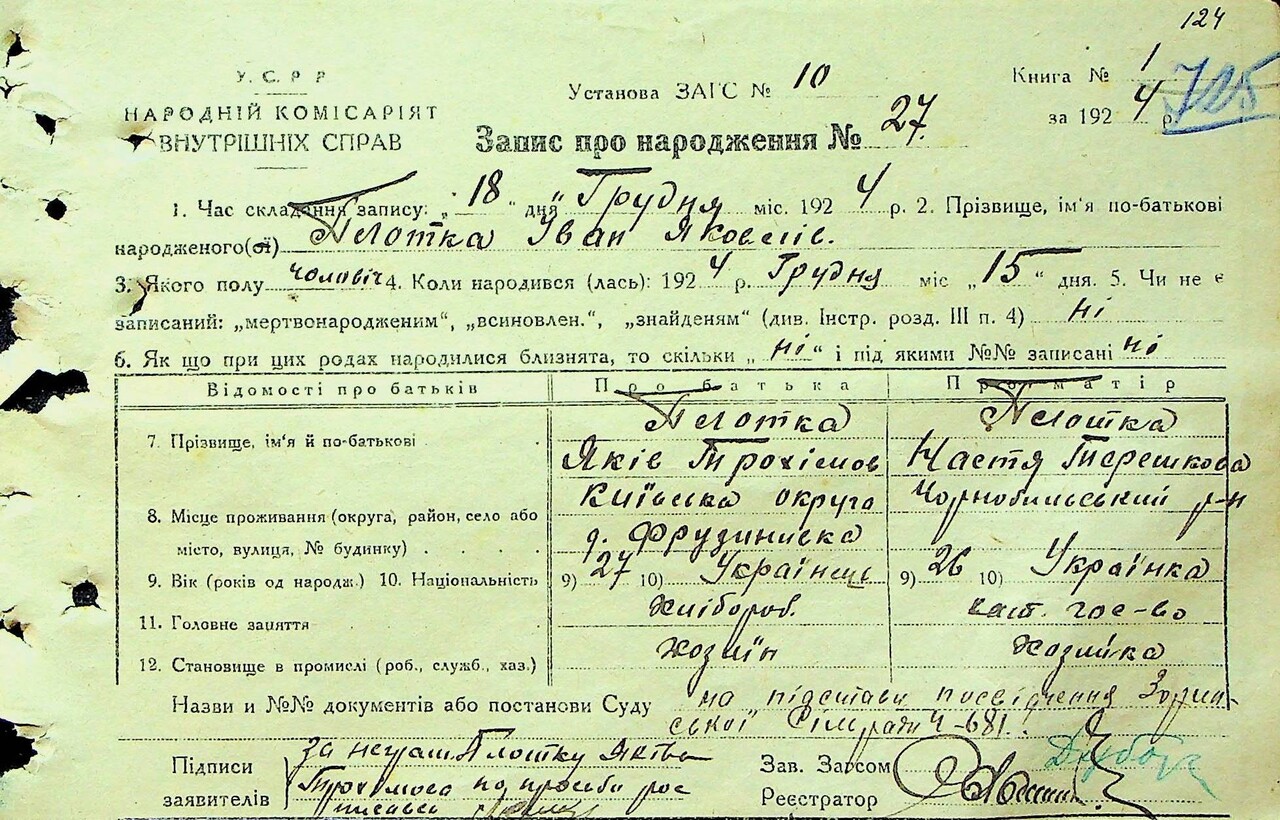 124
У.С.Р.Р.
НАРОДНІЙ КОМІСАРІЯТ
ВНУТРІШНІХ СПРАВ
Установа ЗАГС № 10
Книга № 1
за 1924 р. 725
Запис про народження № 27.
1. Час складення запису: „18“ дня Грудня міс. 1924 р. 2. Прізвище, ім'я по-батькові
народженого(ої) Плотка Іван Яковлів.
3. Якого полу чоловіч 4. Коли народився (лась): 1924 р. Грудня міс „15“ дня. 5. Чи не є
записаний: „мертвонародженим“, „всиновлен.“, „знайденям“ (див. Інстр. розд. III п. 4) ні
6. Як що при цих родах народилися близнята, то скільки „ні“ і під якими №№ записані ні
Відомості про батьків Про батька Про матір
7. Прізвище, ім'я й по-батькові Плотка Плотка
Яків Трохімов Настя Терешкова
8. Місце проживання (округа, район, село або Київська округа Чорнобильський р-н
місто, вулиця, № будинку) д. Фрузинивка
9. Вік (років од народж.) 10. Національність 9) 27 10) Українець 9) 26 10) Українка
11. Головне заняття Хлібороб. хат. гос-во
12. Становище в промислі (роб., служб., хаз.) Хозяїн Хозяйка
Назви и №№ документів або постанови Суду на підставі посвідчення
ської Сільради Ч-681.
Підписи за неграм. Плотку Яківа
заявителів Трохимова по просьби рос
Зав. Загсом
Реєстратор